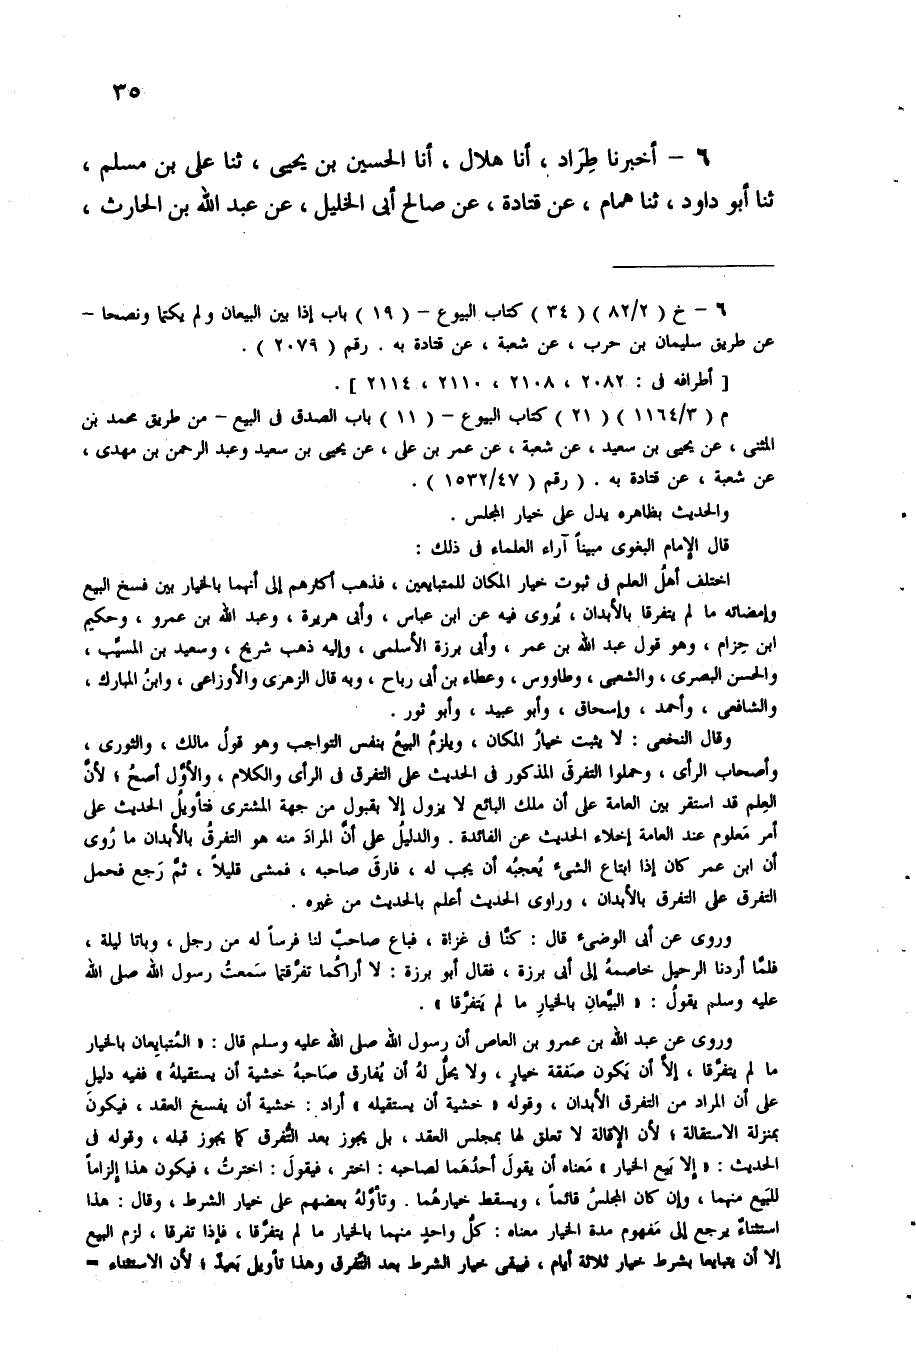 ٣٥
٦ – أخبرنا طِرَاد ، أنا هلال ، أنا الحسين بن يحيى ، ثنا على بن مسلم ،
ثنا أبو داود ، ثنا همام ، عن قتادة ، عن صالح أبى الخليل ، عن عبد الله بن الحارث ،
٦ – خ ( ٨٢/٢ ) ( ٣٤ ) كتاب البيوع – ( ١٩ ) باب إذا بين البيعان ولم يكتما ونصحا –
عن طريق سليمان بن حرب ، عن شعبة ، عن قتادة به . رقم ( ٢٠٧٩ ) .
[ أطرافه فى : ٢٠٨٢ ، ٢١٠٨ ، ٢١١٠ ، ٢١١٤ ] .
م ( ١١٦٤/٣ ) ( ٢١ ) كتاب البيوع – ( ١١ ) باب الصدق فى البيع – من طريق محمد بن
المثنى ، عن يحيى بن سعيد ، عن شعبة ، عن عمر بن على ، عن يحيى بن سعيد وعبد الرحمن بن مهدى ،
عن شعبة ، عن قتادة به . ( رقم ( ١٥٣٢/٤٧ ) .
والحديث بظاهره يدل على خيار المجلس .
قال الإمام البغوى مبيناً آراء العلماء فى ذلك :
اختلف أهلُ العلم فى ثبوت خيار المكان للمتبايعين ، فذهب أكثرهم إلى أنهما بالخيار بين فسخ البيع
وإمضائه ما لم يتفرقا بالأبدان ، يُروى فيه عن ابن عباس ، وأبى هريرة ، وعبد الله بن عمرو ، وحكيم
ابن حِزام ، وهو قول عبد الله بن عمر ، وأبى برزة الأسلمى ، وإليه ذهب شريح ، وسعيد بن المسيَّب ،
والحسن البصرى ، والشعبى ، وطاووس ، وعطاء بن أبى رباح ، وبه قال الزهرى والأوزاعى ، وابنُ المبارك ،
والشافعى ، وأحمد ، وإسحاق ، وأبو عبيد ، وأبو ثور .
وقال النخعى : لا يثبت خيارُ المكان ، ويلزمُ البيعُ بنفس التواجب وهو قولُ مالك ، والثورى ،
وأصحاب الرأى ، وحملوا التفرقَ المذكور فى الحديث على التفرق فى الرأى والكلام ، والأوَّل أصحُ ؛ لأنَّ
العِلم قد استقر بين العامة على أن ملك البائع لا يزول إلا بقبول من جهة المشترى فتأويلُ الحديث على
أمر مَعلوم عند العامة إخلاء الحديث عن الفائدة . والدليلُ على أنَّ المرادَ منه هو التفرقُ بالأبدان ما رُوى
أن ابن عمر كان إذا ابتاع الشىء يُعجبُه أن يجب له ، فارقَ صاحبه ، فمشى قليلاً ، ثمَّ رَجع فحمل
التفرق على التفرق بالأبدان ، وراوى الحديث أعلم بالحديث من غيره .
وروى عن أبى الوضىء قال : كنَّا فى غزاة ، فباع صاحبٌ لنا فرساً له من رجل ، وباتا ليلة ،
فلمَّا أردنا الرحيل خاصمهُ إلى أبى برزة ، فقال أبو برزة : لا أراكُما تفرَّقتما سَمعتُ رسول الله صلى الله
عليه وسلم يقولُ : « البيَّعانِ بالخيارِ ما لم يَتفرَّقا » .
وروى عن عبد الله بن عمرو بن العاص أن رسول الله صلى الله عليه وسلم قال : « المُتبايِعان بالخيار
ما لم يتفرَّقا ، إلاَّ أن يَكون صَفقة خيارٍ ، ولا يحلُّ لهُ أن يُفارق صَاحبهُ خشية أن يستقيلهُ » ففيه دليل
على أن المراد من التفرق الأبدان ، وقوله « خشية أن يستقيله » أراد : خشية أن يفسخ العقد ، فيكونَ
بمنزلة الاستقالة ؛ لأن الإقالة لا تعلق لها بمجلس العقد ، بل يجوز بعد التَّفرق كما يجوز قبله ، وقوله فى
الحديث : « إلا بَيع الخيار » مَعناه أن يقولَ أحدُهَما لصاحبه : اختر ، فيقولَ : اخترتُ ، فيكون هذا إلزاماً
للبَيع منهما ، وإن كان المجلسُ قائماً ، ويسقط خيارهُما . وتأوَّلهُ بعضهم على خيار الشرط ، وقال : هذا
استثناءٌ يرجع إلى مَفهوم مدة الخيار معناه : كلُّ واحدٍ منهما بالخيار ما لم يتفرَّقا ، فإذا تفرقا ، لزم البيع
إلا أن يتبايعا بشرط خيار ثلاثة أيام ، فيبقى خيار الشرط بعد التَّفرق وهذا تأويل بَعيدٌ ؛ لأن الاستثناء –